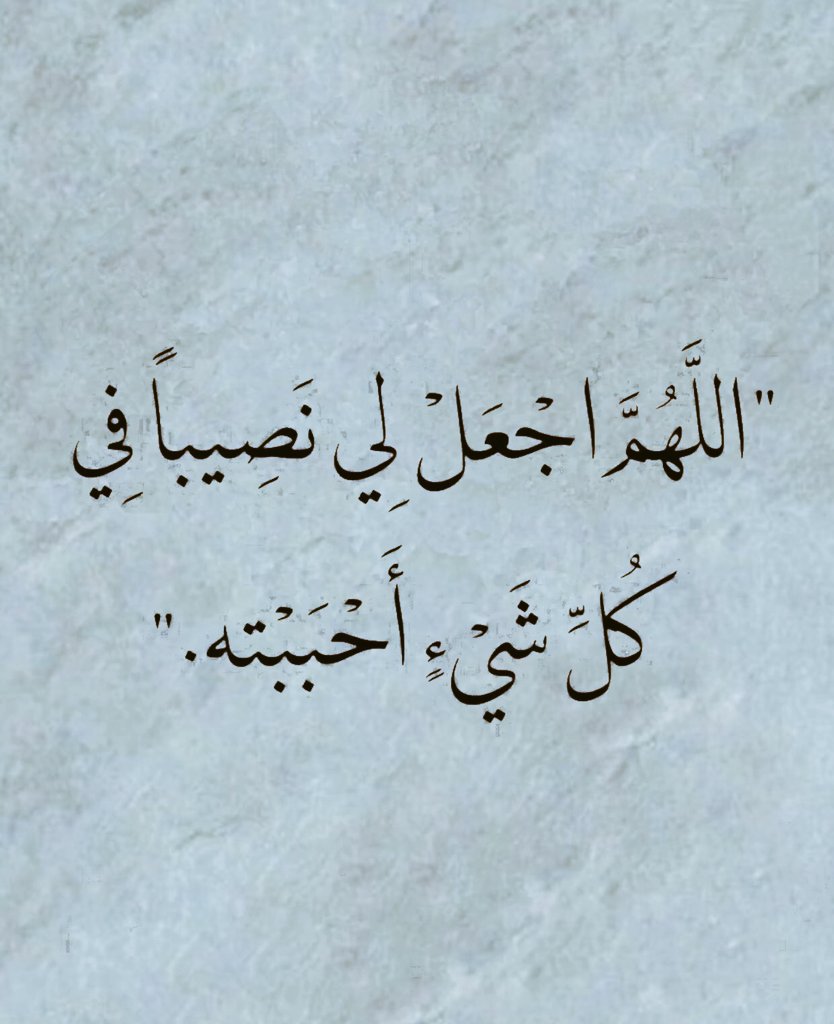 "اللَّهُمَّ اجْعَلْ لِي نَصِيباً فِي
كُلِّ شَيْءٍ أَحْبَبْته."